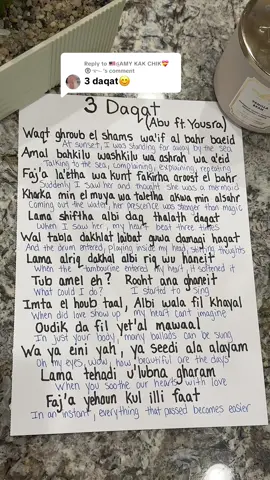 Reply to 🇺🇸AMY KAK CHIK❤️
's comment
3 daqat😊
3 Daqat
(Abu ft. Yousra)
Waqt ghroub el shams wa'if al bahr baeid
At sunset, I was standing far away by the sea
Amal bahkilu washkilu wa ashrah wa a'eid
Talking to the sea, complaining, explaining, repeating
Faj'a la'etha wa kunt fakirha aroost el bahr
Suddenly I saw her and thought she was a mermaid
Kharka min el muya wa taletha akwa min alsahr
Coming out the water, her presence was stronger than magic
Lama shiftha albi dag thalath dagat
When I saw her, my heart beat three times
Wal tabla dakhlat laibat gwa damaghi hagat
And the drum entered, playing inside my head, sorts of thoughts
Lama alriq dakhal albi riq wu haneit
When the tambourine entered my heart, it softened it
Tub amel eh? Rooht ana ghaneit
What could I do? I started to sing
Imta el houb taal, Albi wala fil khayal
When did love show up? my heart can't imagine
Oudik da fil yet'al mawaal
In just your body, many ballads can be sung
Wa ya eini yah, ya seedi ala alayam
Oh my eyes, wow, how beautiful are the days
Lama tehadi u'lubna gharam
When you soothe our hearts with love
Faj'a yehoun kul illi faat
In an instant, everything that passed becomes easier